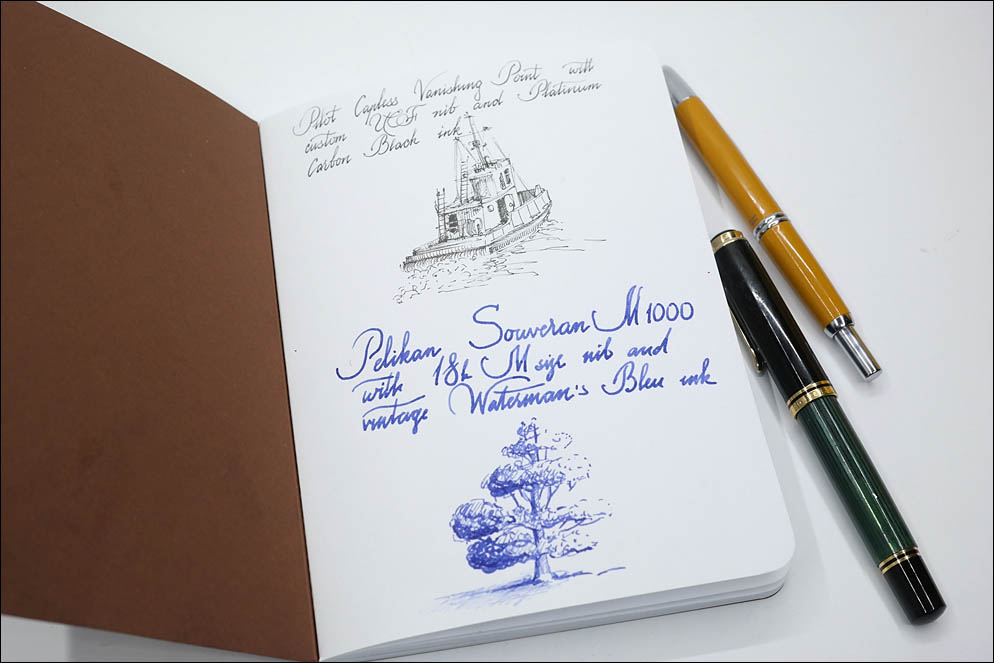 Pilot Capless Vanishing Point with
custom UEF nib and Platinum
Carbon Black ink
Pelikan Souveran M1000
with 18k M size nib and
vintage Waterman's Bleu ink